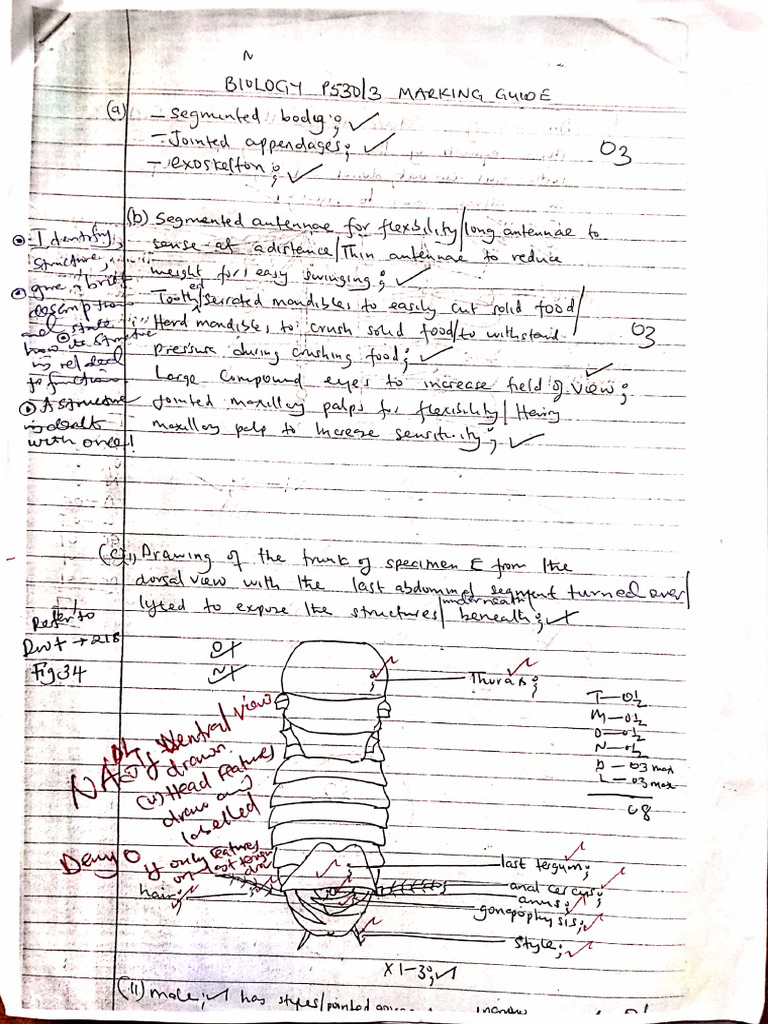 N
BIOLOGY P530/3 MARKING GUIDE
(a) - Segmented body; ✓
- Jointed appendages; ✓
- exoskelton; ✓
03
(b) Segmented antennae for flexibility/long antennae to
sense at a distance/Thin antennae to reduce
weight for easy swinging; ✓
Toothed/serrated mandibles to easily cut solid food/
Hard mandibles to crush solid food/to withstand
pressure during crushing food; ✓
Large Compound eyes to increase field of view; ✓
Jointed maxillary palps for flexibility/Hairy
maxillary palp to increase sensitivity; ✓
03
Identify
structure,
give brief
description
and state
how its structure
is related
to function
A structure
is dealt
with once!
(c) i, Drawing of the trunk of specimen E from the
dorsal view with the last abdominal segment turned over/
lifted to expose the structures/underneath/beneath; ✓
Refer to
→ 218
Fig 34
O
N
Thorax;
T - 0½
M - 0½
O - 0½
N - 0½
D - 03 max
L - 03 max
08
NA DL
if Ventral view
drawn
(ii) Head features
drawn and
labelled
Deny O if only features
on last tergum
hair;
last tergum;
anal cercus;
anus;
gonapophysis;
style;
X 1-3; ✓
(ii) male; ✓ has styles/pointed